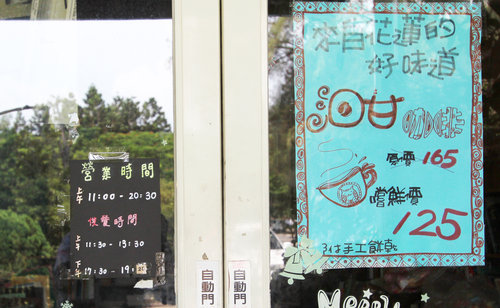 營業時間
上午 11:00 - 20:30
供餐時間
上午 11:30 - 13:30
下午 17:30 - 19:
自動門
自動門
來自花蓮的
好味道
咖啡
原價 165
嚐鮮價
125
附手工餅乾